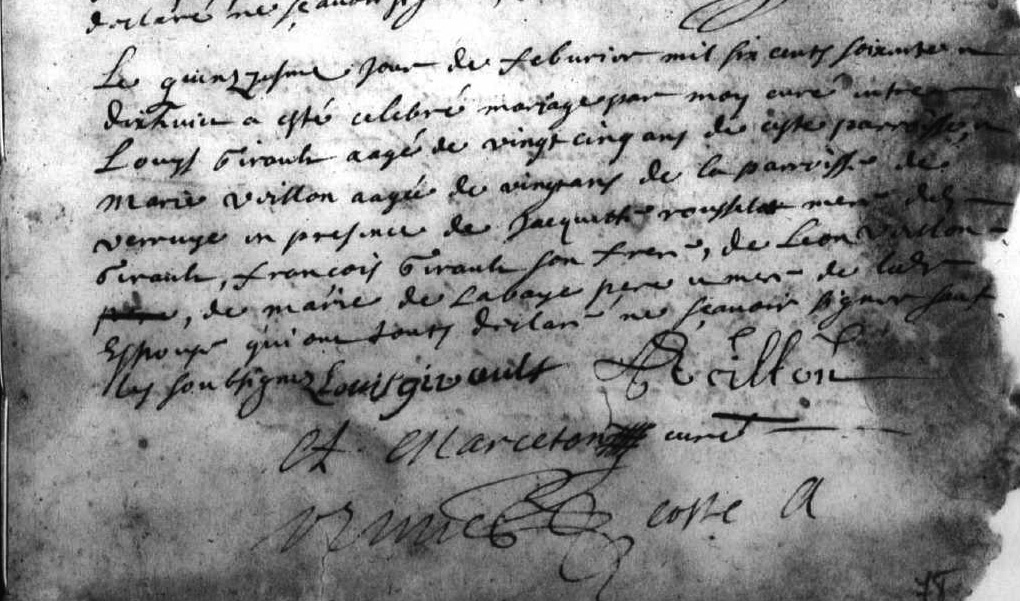 declaré ne sçavoir
Le quinziesme jour de feburier mil six cents soixante et
dixhuict a esté celebré mariage par moy curé entre
Louys Girault aagé de vingt cinq ans de ceste parroisse, et
Marie Veillon aagée de vingt ans de la parroisse de
verruye en presence de Jacquette rousselot mere dud
Girault, françois Girault son frere, de Leon Veillon
, de marie de Labaye pere et mere de lade
Espouse qui ont touts declaré ne sçavoir signer sauf
les soubsignez Louis girault Veillon
et Marceton curé
coste A